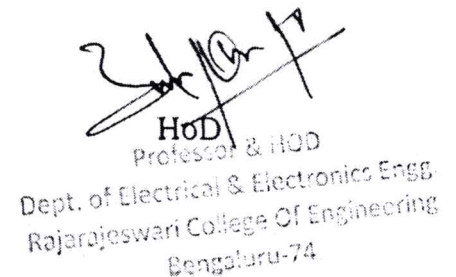 HoD
Professor & HOD
Dept. of Electrical & Electronics Engg.
Rajarajeswari College Of Engineering
Bengaluru-74